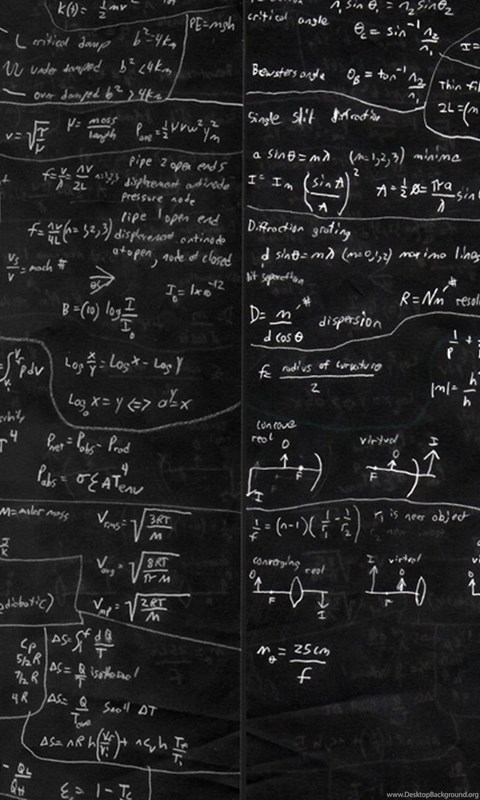 K(t) = 1/2 mv²
PE=mgh
critical damp b²=4km
under damped b²<4km
over damped b²>4km
v=√(T/μ) μ=mass/length Pave=1/2 μvω²y²m
pipe 2 open ends
f=v/λ=nv/2L n=1,2,3 displacement antinode
pressure node
pipe 1 open end
f=nv/4L (n=1,2,3) displacement antinode
at open, node at closed
vs/v=mach #
I₀=1x10⁻¹²
B=(10) log I/I₀
∫pdV
Log x/y = Log x - Log y
Logₐ x=y <=> aʸ=x
Pnet=Pabs-Prad
Pabs=σεAT⁴env
M=molar mass
Vrms=√(3RT/M)
Vavg=√(8RT/πM)
Vmp=√(2RT/M)
diabatic)
Cp
5/2 R
7/2 R
4R
ΔS=∫dQ/T
ΔS=Q/T isothermal
ΔS=Q/Tave Small ΔT
ΔS=nR ln(Vf/Vi)+nCv ln Tf/Ti
QL/QH
ε=1-Tc
n₁ sinθ₁=n₂ sinθ₂
critical angle θc=sin⁻¹ n₂/n₁
I=
Brewsters angle θB=tan⁻¹ n₂/n₁
Thin fil
2L=(m
Single slit diffraction
a sinθ=mλ (m=1,2,3) minima
I=Im (sin A/A)² A=1/2 ø=πa/λ sin
Diffraction grating
d sinθ=mλ (m=0,1,2) maxima lines
slit seperation
D=m/d cosθ dispersion
R=Nm resol
f= radius of curvature/2
1/p +
|m|=h'/h
concave
real
O
F
I
virtual
O
F
I
1/f=(n-1)(1/r₁-1/r₂) r₁ is near object
converging real
O
F
I
I virtual
O
F
mθ=25cm/f
www.DesktopBackground.org